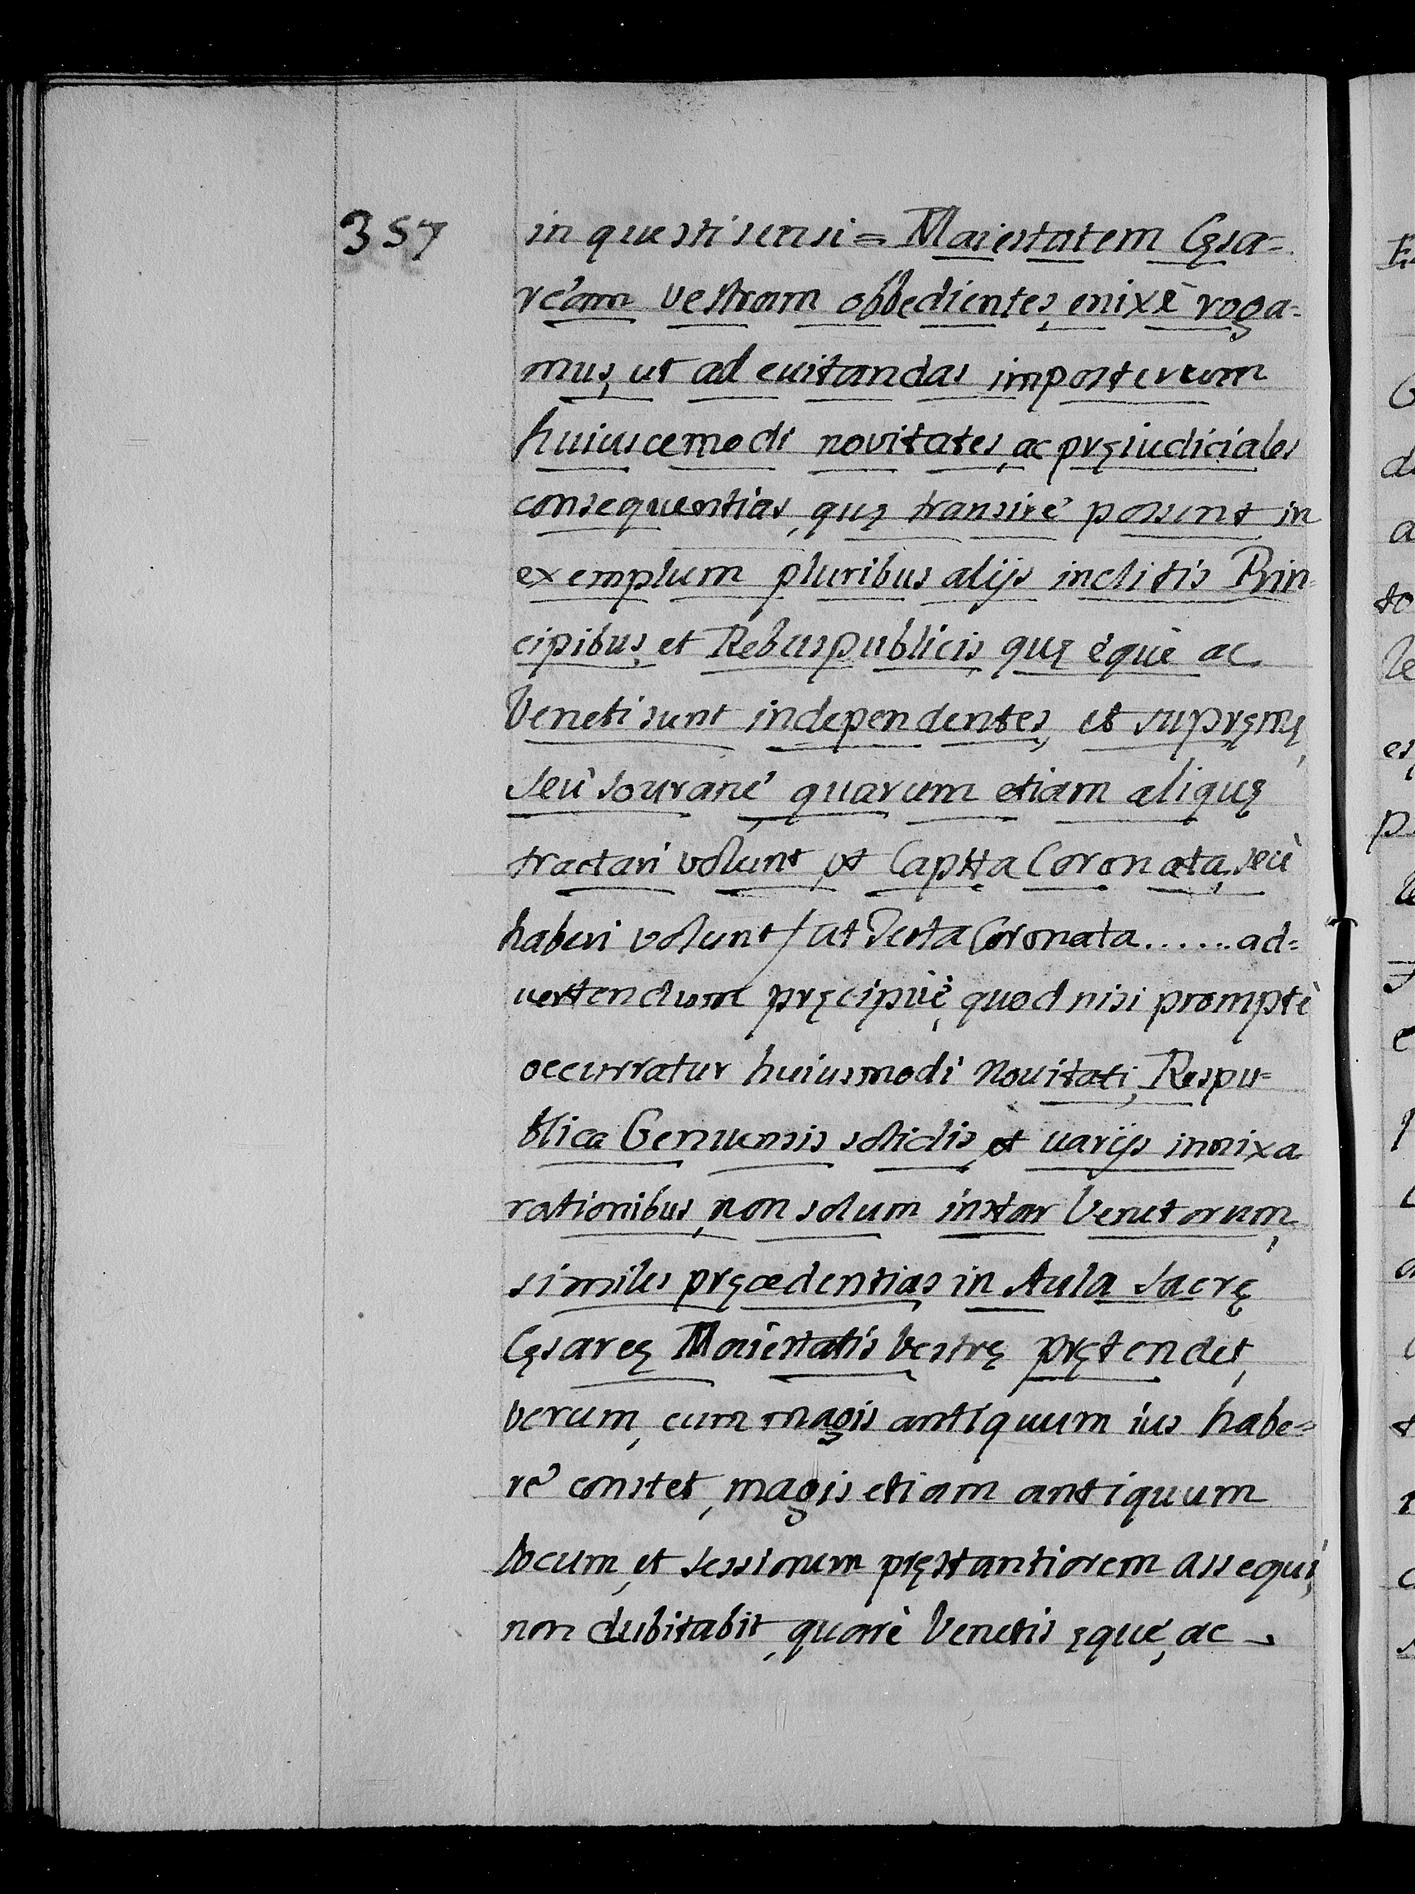 357
in questi sensi = Maiestatem Cęsa-
reàm vestram obbedientes, enixè roga-
mus, ut ad euitandas imposterum
huiuscemodi novitates, ac pręiudiciales
consequentias, quę transire possent in
exemplum pluribus alijs inclitis Prin-
cipibus, et Rebuspublicis, quę équè ac
Veneti sunt independentes, et supręmę,
seù sourane quarum etiam aliquę
tractari volunt, ut Capita Coronata, seù
haberi volunt / ut Serta Coronata......ad=
uertendum pręcipuè, quod nisi promptè
occurratur huiusmodi Nouitati, Respu=
blica Genuensis solidis, et uarijs innixa
rationibus, non solum instar Venetorum,
similes pręcedentias in Aula Sacrę
Cęsareę Maiestatis Vestrę prętendet,
verum, cum magis antiquum ius habe=
re constet, magis etiam antiquum
locum, et sessionum pręstantiorem assequi,
non dubitabit, quarè Venetis ęquè, ac